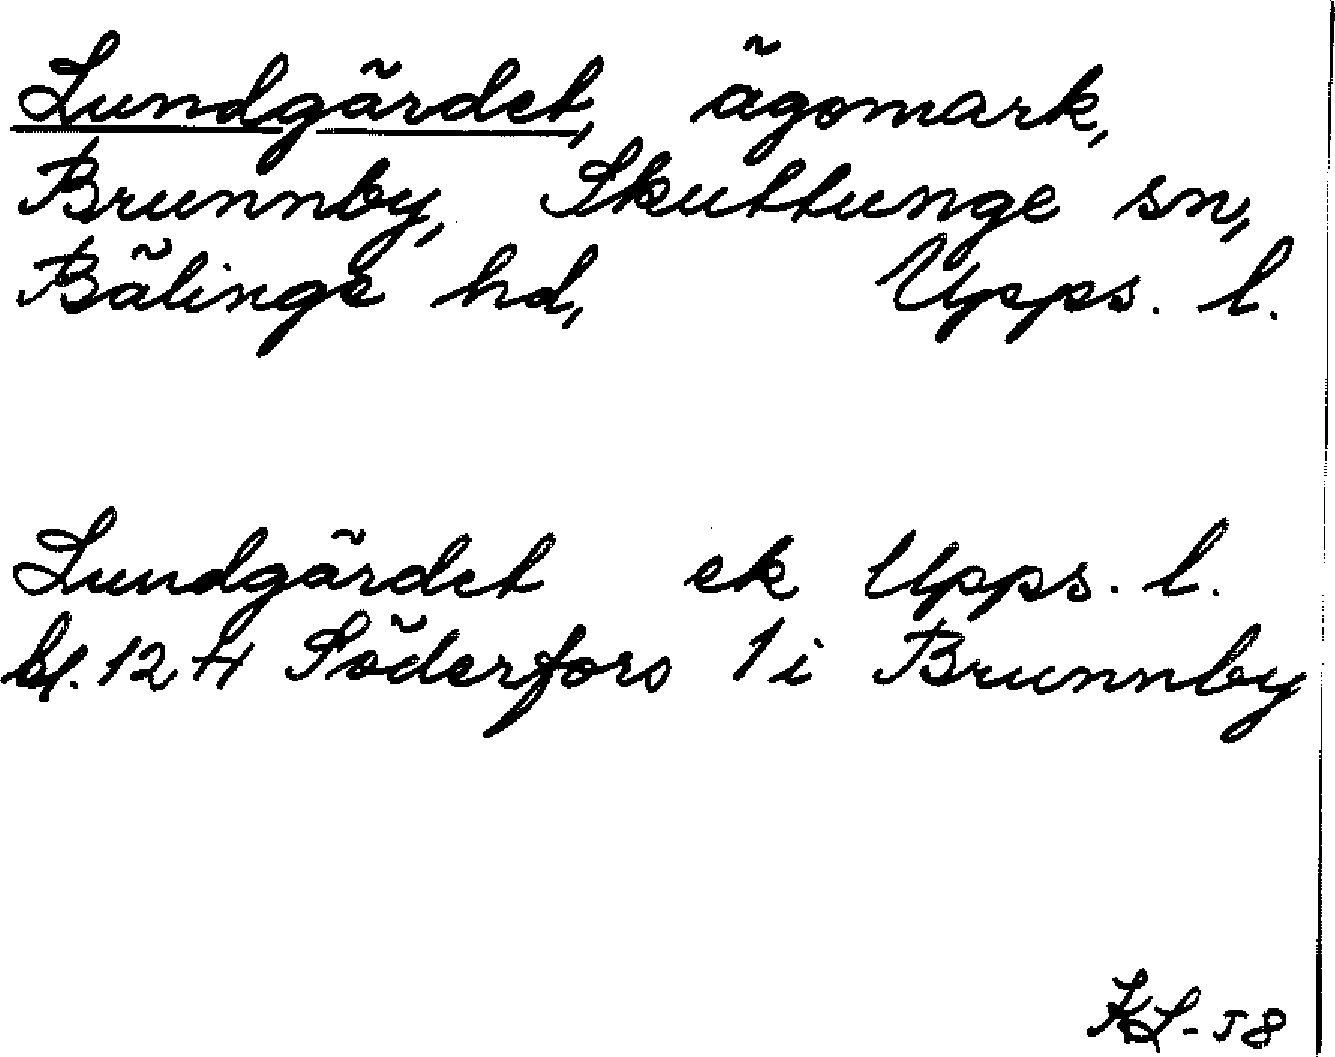 Lundgärdet, ägomark,
Brunnby, Skuttunge sn,
Bälinge hd, Upps. l.
Lundgärdet ek Upps. l.
bl. 124 Söderfors 1i Brunnby
KL-58